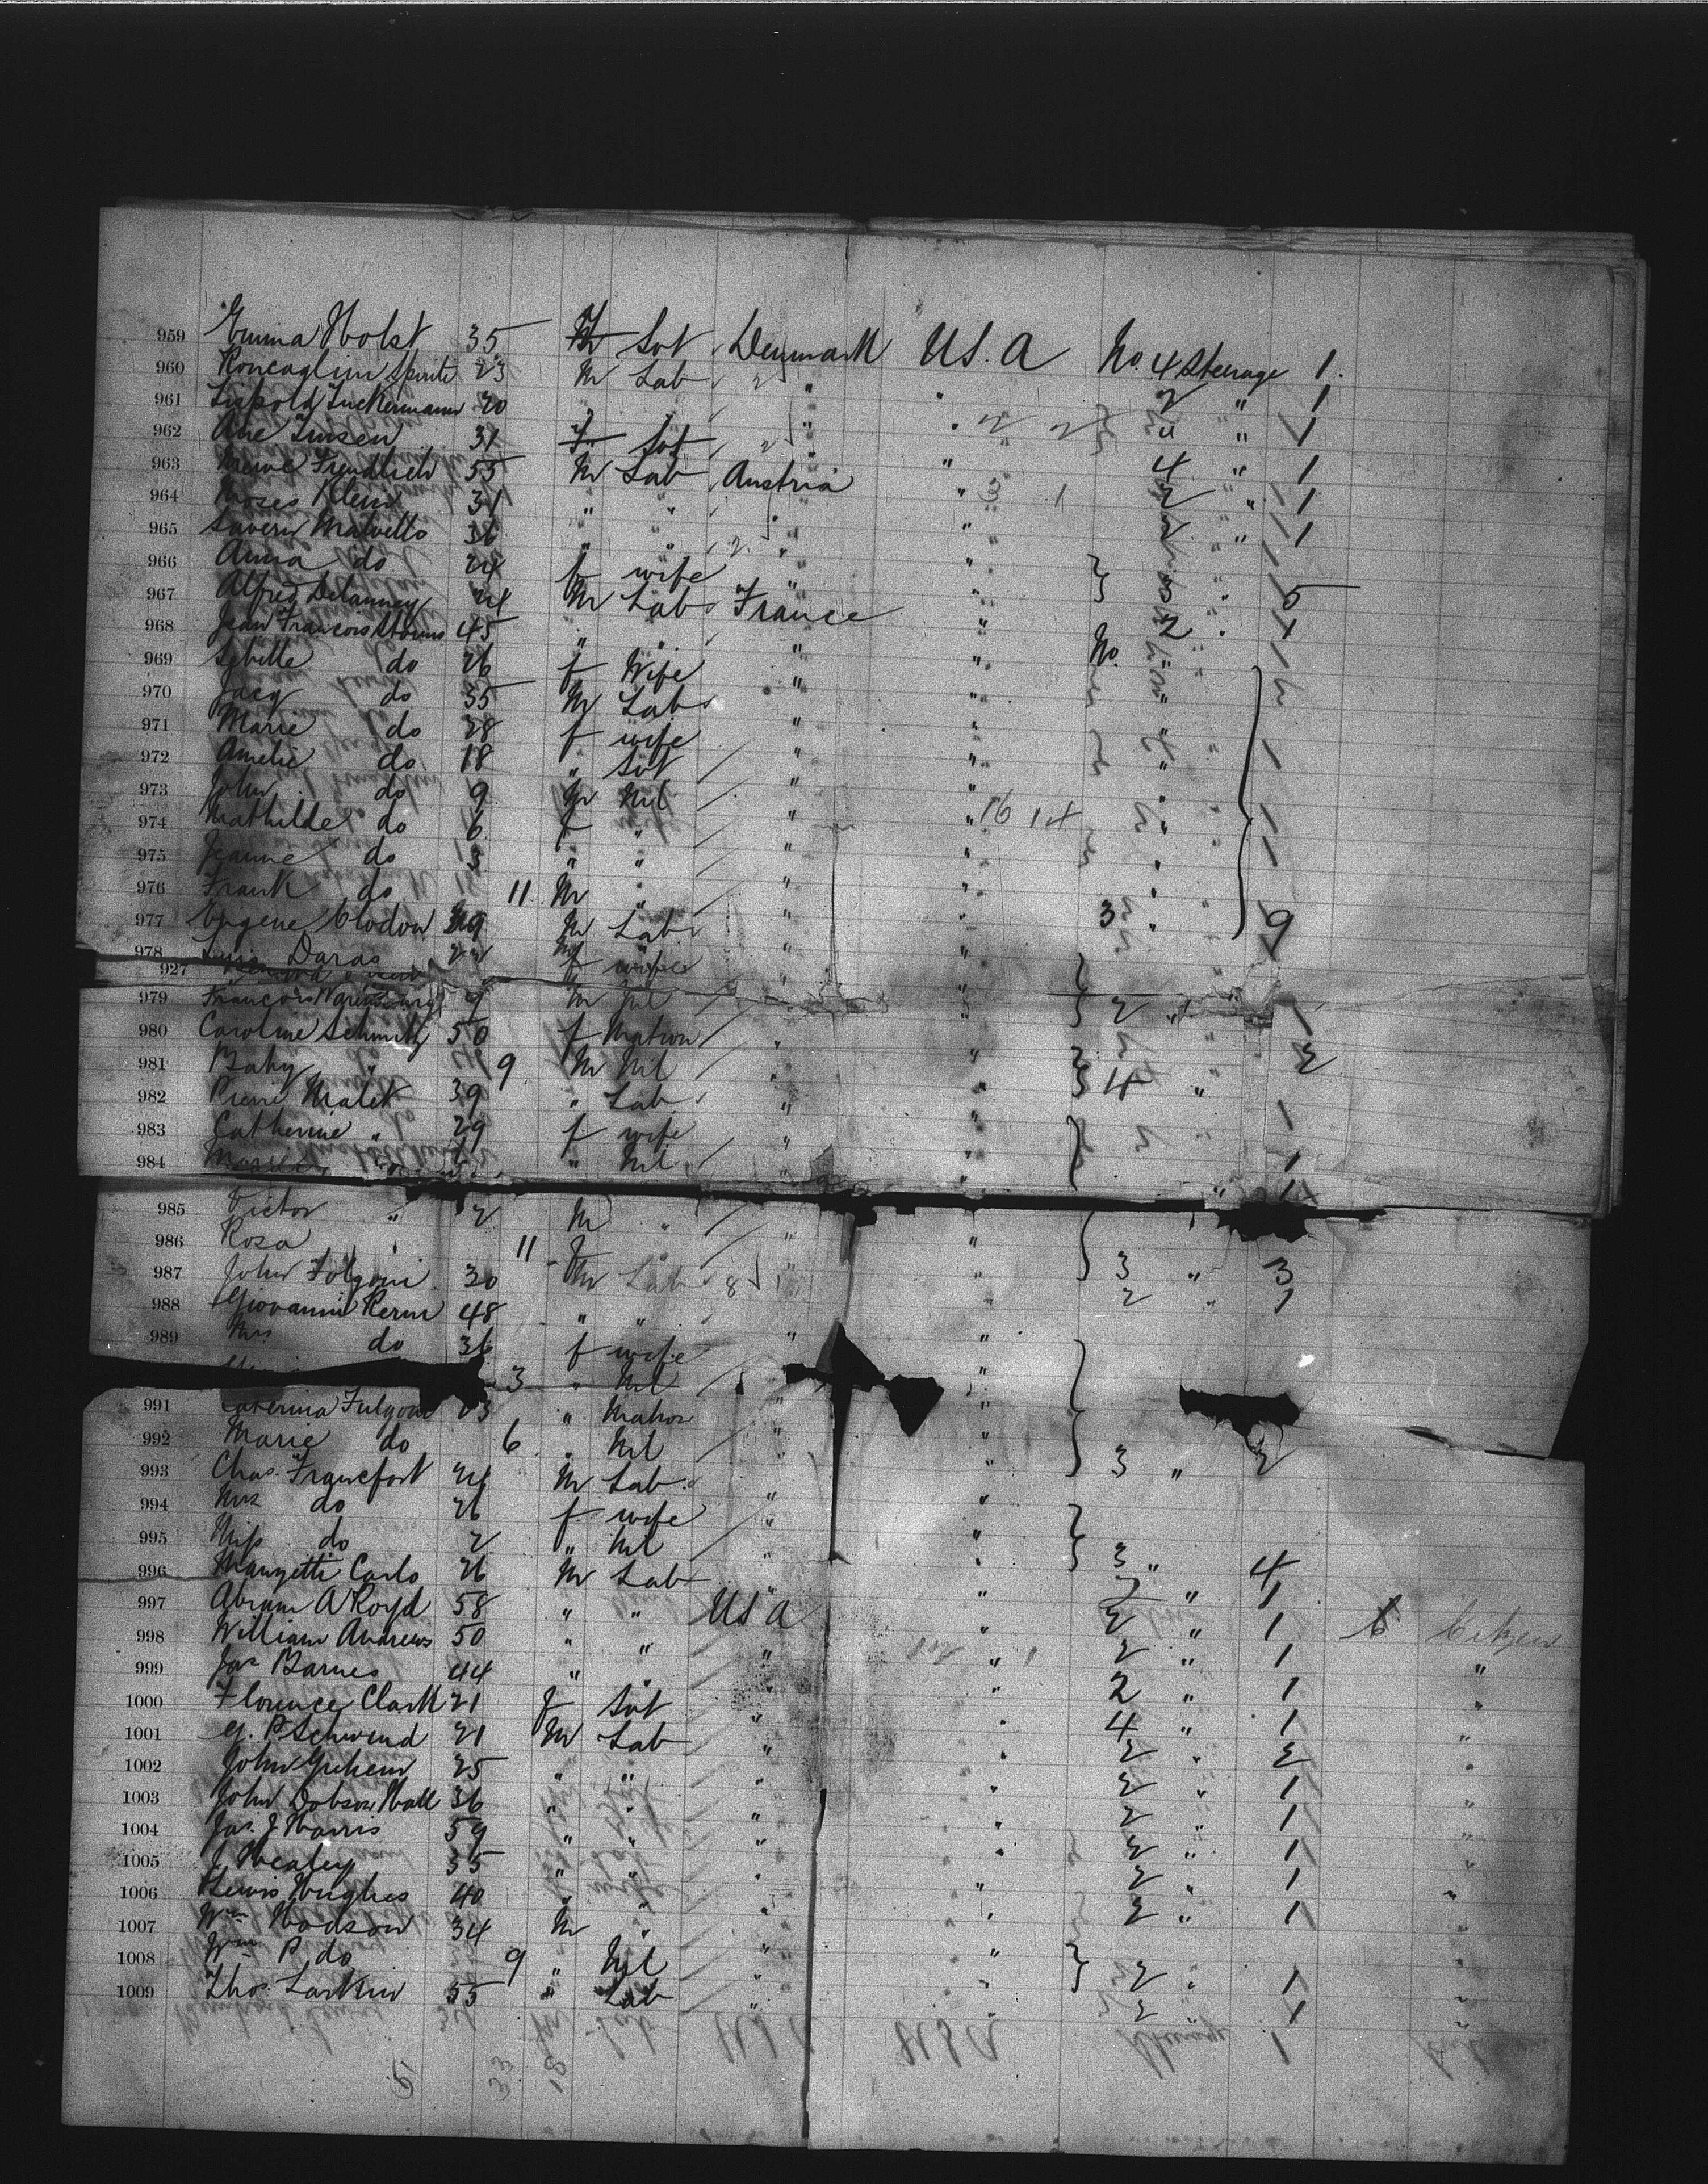 959 Emma Holst 35 Svt Denmark U.S.A No. 4 Steerage 1.
960 Roncaglini Spirite 23 M Lab " " 2 " 1
961 Tuckermann 20 " " " " 1
962 Ane Jensen 31 F Svt " " 4 " 1
963 55 M Lab Austria " 2 " 1
964 Moses Klein 31 " " " " 2 " 1
965 Saveri Malvetto 36 " " " "
966 Anna do 24 f wife " " 3 " 5
967 Alfred Delanney 24 M Lab France " 2 " 1
968 Jean Francois 45 " " " " No. "
969 Sybille do 26 f Wife " " "
970 Jacq do 35 M Lab " " "
971 Marie do 28 f wife " " "
972 Amelie do 18 " Svt " " "
973 John do 9 M Nil " " "
974 Mathilde do 6 f " " " 16 14 "
975 Jeanne do 3 " " " " "
976 Frank do 11 M " " " "
977 Eugene Clodon M Lab " " 3 " 9
978 Daras f wife " "
927
979 Francois 9 M Nil " " 2 "
980 Caroline Schmitz 50 f Matron " " 2
981 Baby " 9 M Nil " " 4 "
982 Pierre Malet 39 " Lab " "
983 Catherine " 29 f wife " "
984 " Nil " "
985 Victor " 2 M " " "
986 Rosa " 11 " 3 " 3
987 John Folgoni 30 M Lab 8 " " 2 " 1
988 Giovanni 48 " " " "
989 Mrs do 36 f wife " "
3 " Nil " "
991 Caterina Fulgoni " Matron " "
992 Marie do 6 " Nil " " 3 " 2
993 Chas. Francfort 24 M Lab " "
994 Mrs do 26 f wife " "
995 Miss do 2 " Nil " " 3 " 4
996 Manzetti Carlo 26 M Lab " " 2 " 1
997 Abram A Royd 58 " " U S A " 2 " 1 Citizen
998 William Andrews 50 " " " " 2 " 1 "
999 Jas Barnes 44 " " " " 2 " 1 "
1000 Florence Clark 21 f Svt " " 4 " 1 "
1001 G. P. Schwend 21 M Lab " " 2 " 2 "
1002 John 25 " " " " 2 " 1 "
1003 John Dobson Hall 36 " " " " 2 " 1 "
1004 Jas. J Harris 59 " " " " 2 " 1 "
1005 J Healey 35 " " " " 2 " 1 "
1006 Lewis Hughes 40 " " " " 2 " 1 "
1007 Wm Hodson 34 M " " "
1008 Wm P. do 9 " Nil " " 2 " 1 "
1009 Thos Larkin 55 " Lab " " 2 " 1 "